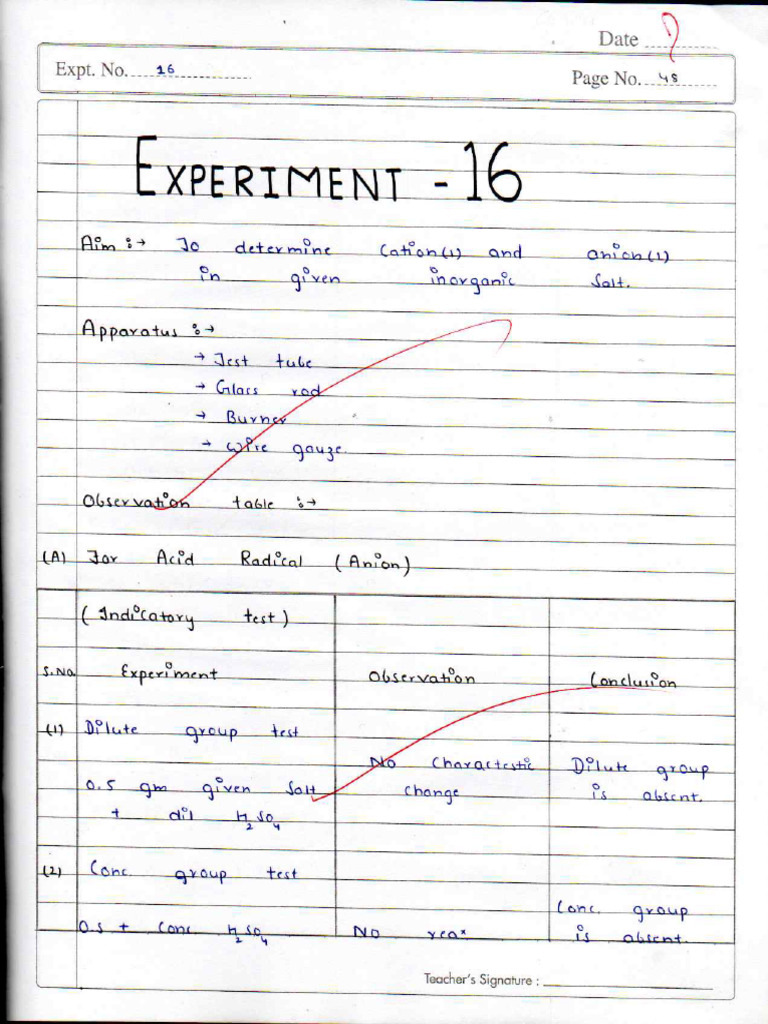 Date
Expt. No. 16
Page No. 48
EXPERIMENT - 16
Aim :→ To determine Cation(1) and anion(1)
in given inorganic Salt.
Apparatus :→
→ Test tube
→ Glass rod
→ Burner
→ Wire gauze.
Observation table :→
(A) For Acid Radical (Anion)
(Indicatory test)
S.No. Experiment Observation Conclusion
(1) Dilute group test
No Charactestic Dilute group
0.5 gm given Salt change is absent.
+ dil H2SO4
(2) Conc. group test
Conc. group
0.5 + Conc H2SO4 No reax is absent.
Teacher's Signature :